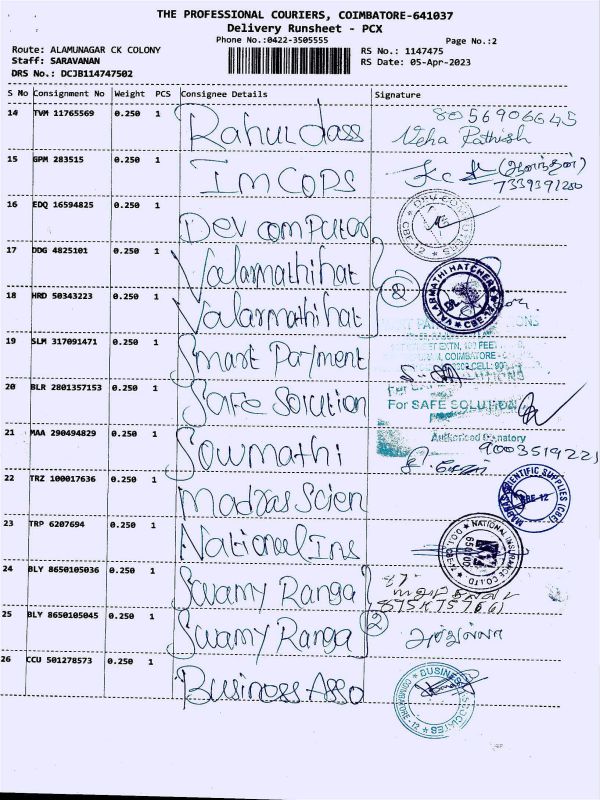 THE PROFESSIONAL COURIERS, COIMBATORE-641037
Delivery Runsheet - PCX
Phone No.:0422-3505555
Page No.:2
Route: ALAMUNAGAR CK COLONY
RS No.: 1147475
Staff: SARAVANAN
RS Date: 05-Apr-2023
DRS No.: DCJB114747502
S Mo Consignment No Weight PCS Consignee Details Signature
14 TVM 11765569 0.250 1 Rahul dass 8056906645
Neha Rathish
15 GPM 283515 0.250 1 Imcops
7339391200
16 EDQ 16594825 0.250 1 Dev computer
17 DDG 4825101 0.250 1 Valarmathihat
2 VALARMATHI HATCHERE
18 HRD 50343223 0.250 1 Valarmathihat
19 SLM 317091471 0.250 1 Smart Payment
COIMBATORE
20 BLR 2801357153 0.250 1 Safe Solution
For SAFE SOLUTION
Authorised Signatory
21 MAA 290494829 0.250 1 Sowmathi
22 TRZ 100017636 0.250 1 Madras Scien
MADRAS SCIENTIFIC SUPPLIES (CBE) CBE-12
23 TRP 6207694 0.250 1 National Ins
NATIONAL INSURANCE CO.LTD.
24 BLY 8650105036 0.250 1 Swamy Ranga
25 BLY 8650105045 0.250 1 Swamy Ranga
2
26 CCU 501278573 0.250 1 Business Asso
BUSINESS ASSOCIATES COIMBATORE-12